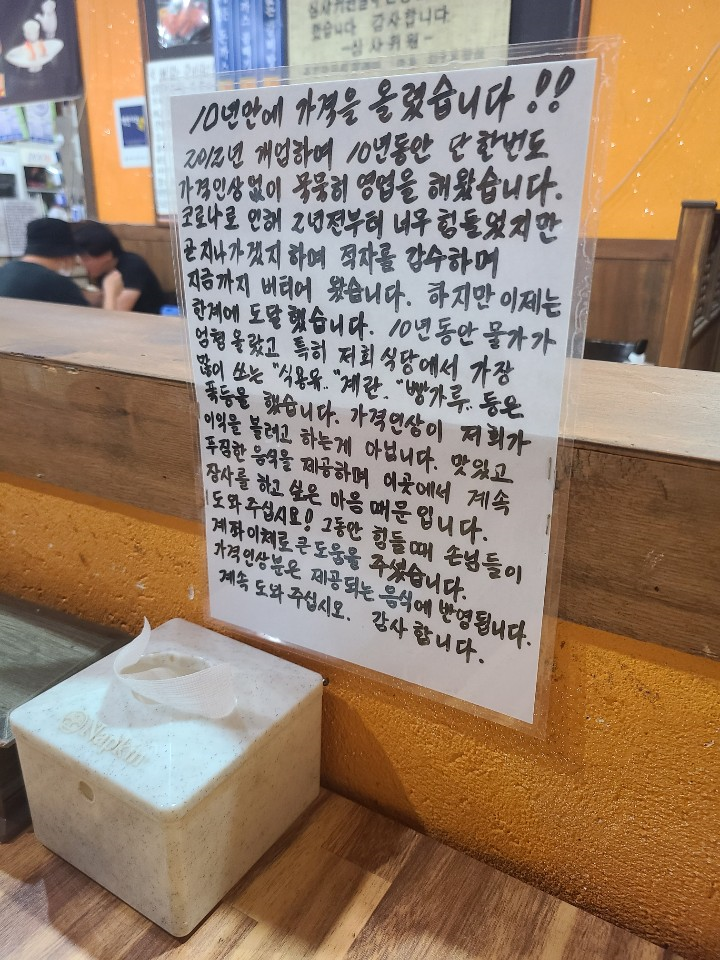 했습니다. 감사합니다.
-심사위원-
10년만에 가격을 올렸습니다!!
2012년 개업하며 10년동안 단 한번도
가격인상없이 묵묵히 영업을 해왔습니다.
코로나로 인해 2년전부터 너무 힘들었지만
곧 지나가겠지하며 적자를 감수하며
지금까지 버티어 왔습니다. 하지만 이제는
한계에 도달했습니다. 10년동안 물가가
엄청 올랐고 특히 저희 식당에서 가장
많이 쓰는 "식용유", "계란", "빵가루" 등은
폭등을 했습니다. 가격인상이 저희가
이익을 볼려고 하는게 아닙니다. 맛있고
푸짐한 음식을 제공하며 이곳에서 계속
장사를 하고 싶은 마음 때문입니다.
도와 주십시요! 그동안 힘들때 손님들이
계좌이체로 큰 도움을 주셨습니다.
가격인상분은 제공되는 음식에 반영됩니다.
계속 도와주십시오. 감사합니다.
Napkin